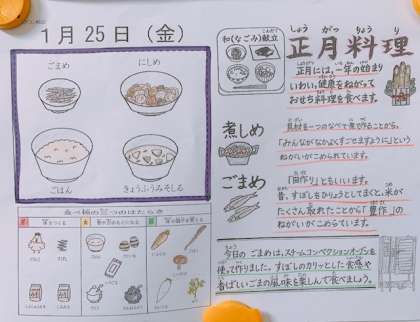 1月25日（金）
ごまめ
にしめ
ごはん
きょうふうみそしる
食べ物の三つのはたらき
和(なごみ)献立
しょう がつ りょう り
正月料理
正月には、一年の始まり
いわい、健康をねがって
おせち料理を食べます。
煮しめ
具材を一つのなべで煮ることから、
「みんながなかよくすごせますように」という
ねがいがこめられています。
ごまめ
「田作り」ともいいます。
昔、すぼしをひりょうとしてまくと、米が
たくさん取れたことから「豊作」の
ねがいがこめられています。
今日の ごまめは、スチームコンベクションオーブンを
使って作りました。すぼしのカリッとした食感や
香ばしいごまの風味を楽しんで食べましょう。